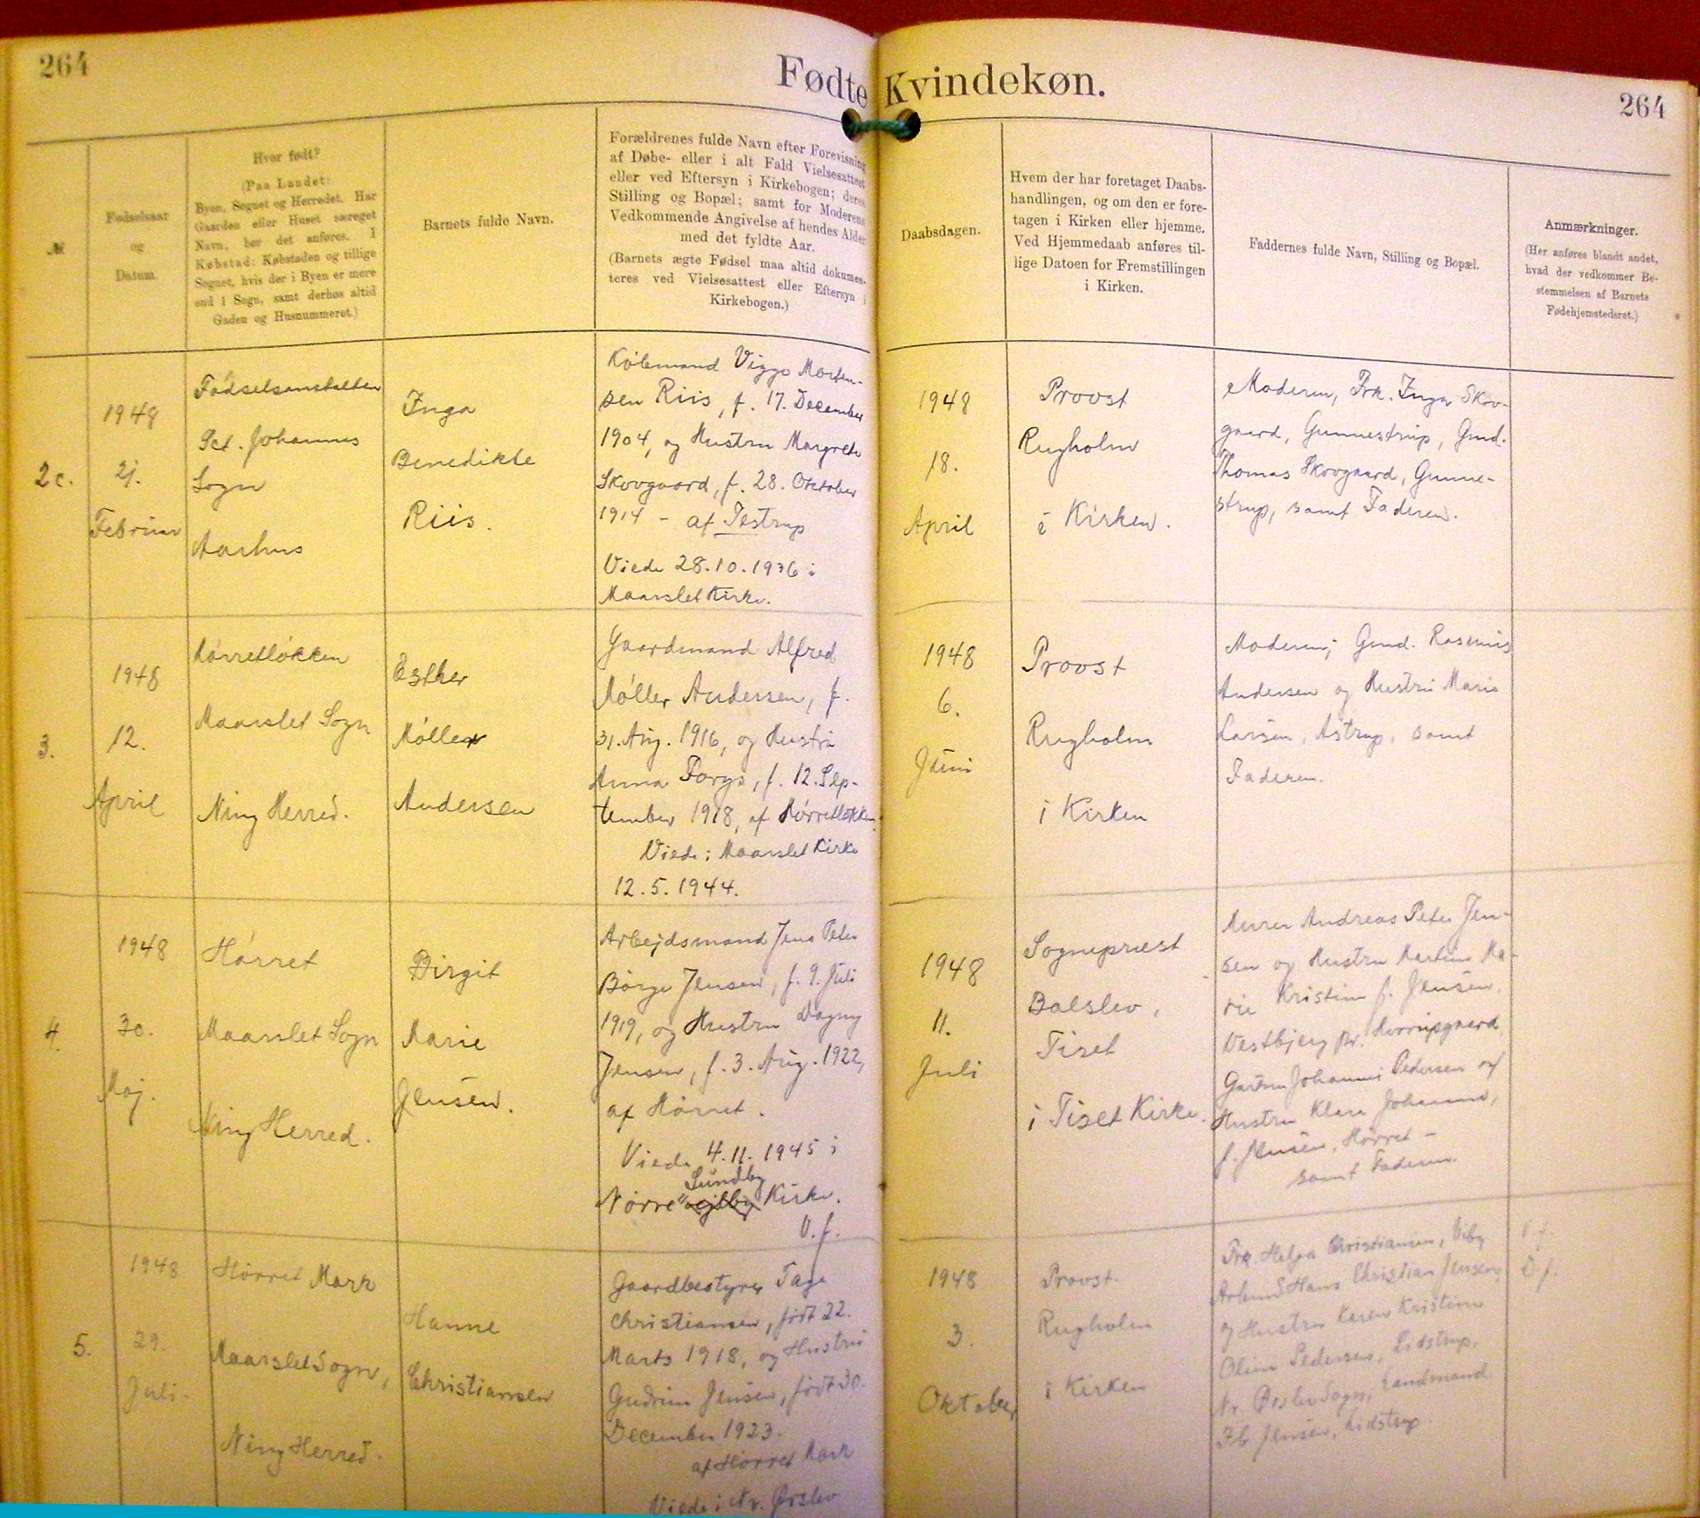 264
Fødte Kvindekøn.
264
№
Fødselsaar
og
Datum.
Hvor født?
(Paa Landet:
Byen, Sognet og Herredet. Har
Gaarden eller Huset særeget
Navn, bør det anføres. I
Købstad: Købstaden og tillige
Sognet, hvis der i Byen er mere
end 1 Sogn, samt derhos altid
Gaden og Husnummeret.)
Barnets fulde Navn.
Forældrenes fulde Navn efter Forevisning
af Døbe- eller i alt Fald Vielsesattest
eller ved Eftersyn i Kirkebogen; deres
Stilling og Bopæl; samt for Moderens
Vedkommende Angivelse af hendes Alder
med det fyldte Aar.
(Barnets ægte Fødsel maa altid dokumen-
teres ved Vielsesattest eller Eftersyn i
Kirkebogen.)
Daabsdagen.
Hvem der har foretaget Daabs-
handlingen, og om den er fore-
tagen i Kirken eller hjemme.
Ved Hjemmedaab anføres til-
lige Datoen for Fremstillingen
i Kirken.
Faddernes fulde Navn, Stilling og Bopæl.
Anmærkninger.
(Her anføres blandt andet,
hvad der vedkommer Be-
stemmelsen af Barnets
Fødehjemstedsret.)
2c.
1948
21.
Februar
Fødselsanstalten
Sct. Johannes
Sogn
Aarhus
Inga
Benedikte
Riis.
Købmand Viggo Morten-
sen Riis, f. 17. December
1904, og Hustru Margrete
Skovgaard, f. 28. Oktober
1914 - af Testrup
Viede 28.10.1936 i
Maarslet Kirke.
1948
18.
April
Provst
Rugholm
i Kirken.
Moderen, Frk. Inga Skov-
gaard, Gunnestrup, Gmd.
Thomas Skovgaard, Gunne-
strup, samt Faderen.
3.
1948
12.
April
Hørretløkken
Maarslet Sogn
Ning Herred.
Esther
Møller
Andersen
Gaardmand Alfred
Møller Andersen, f.
31. Aug. 1916, og Hustru
Anna Fargs, f. 12. Sep-
tember 1918, af Hørretløkken
Viede i Maarslet Kirke
12.5.1944.
1948
6.
Juni
Provst
Rugholm
i Kirken
Moderen; Gmd. Rasmus
Andersen og Hustru Marie
Larsen, Astrup, samt
Faderen.
4.
1948
30.
Maj.
Hørret
Maarslet Sogn
Ning Herred.
Birgit
Marie
Jensen.
Arbejdsmand Jens Peter
Børge Jensen, f. 9. Juli
1919, og Hustru Dagny
Jensen, f. 3. Aug. 1922,
af Hørret.
Viede 4.11.1945 i
Sundby
Nørre Kirke.
V.f.
1948
11.
Juli
Sognepræst
Balslev,
Tiset
i Tiset Kirke.
Murer Andreas Peter Jen-
sen og Hustru Martine Ma-
rie Kristine f. Jensen,
Vestbjerg pr.
Gartner Johannes Pedersen og
Hustru Klara Johanne,
f. Jensen, Hørret -
samt Faderen.
5.
1948
29.
Juli.
Hørret Mark
Maarslet Sogn,
Ning Herred.
Hanne
Christiansen
Gaardbestyrer Tage
Christiansen, født 22.
Marts 1918, og Hustru
Gudrun Jensen, født 30.
December 1923.
af Hørret Mark
Viede i Nr. Ørslev
1948
3.
Oktober
Provst
Rugholm
i Kirken
Frk. Helga Christiansen, Viby
Hans Christian Jensen
og Hustru Karen Kristine
Oline Pedersen, Lidstrup,
Nr. Ørslev Sogn, Landmand
Ib Jensen, Lidstrup
V.f.
D.f.